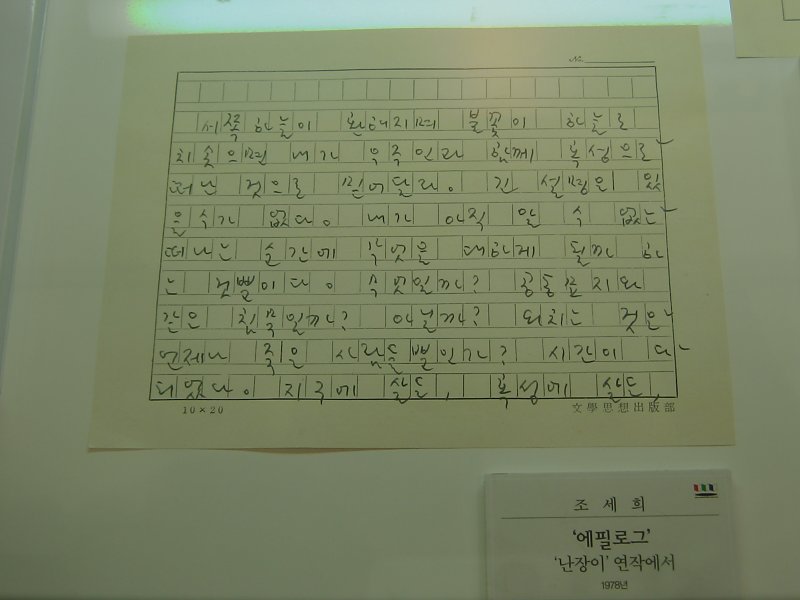 No.
서쪽 하늘이 환해지며 불꽃이 하늘로
치솟으면 내가 우주인과 함께 혹성으로
떠난 것으로 믿어달라. 긴 설명은 있
을 수가 없다. 내가 아직 알 수 없는
떠나는 순간에 무엇을 대하게 될까 하
는 것뿐이다. 무엇일까? 공동묘지와
같은 침묵일까? 아닐까? 외치는 것은
언제나 죽은 사람들뿐인가? 시간이 다
되었다. 지구에 살든, 혹성에 살든,
10×20
文學思想出版部
조세희
'에필로그'
'난장이' 연작에서
1978년